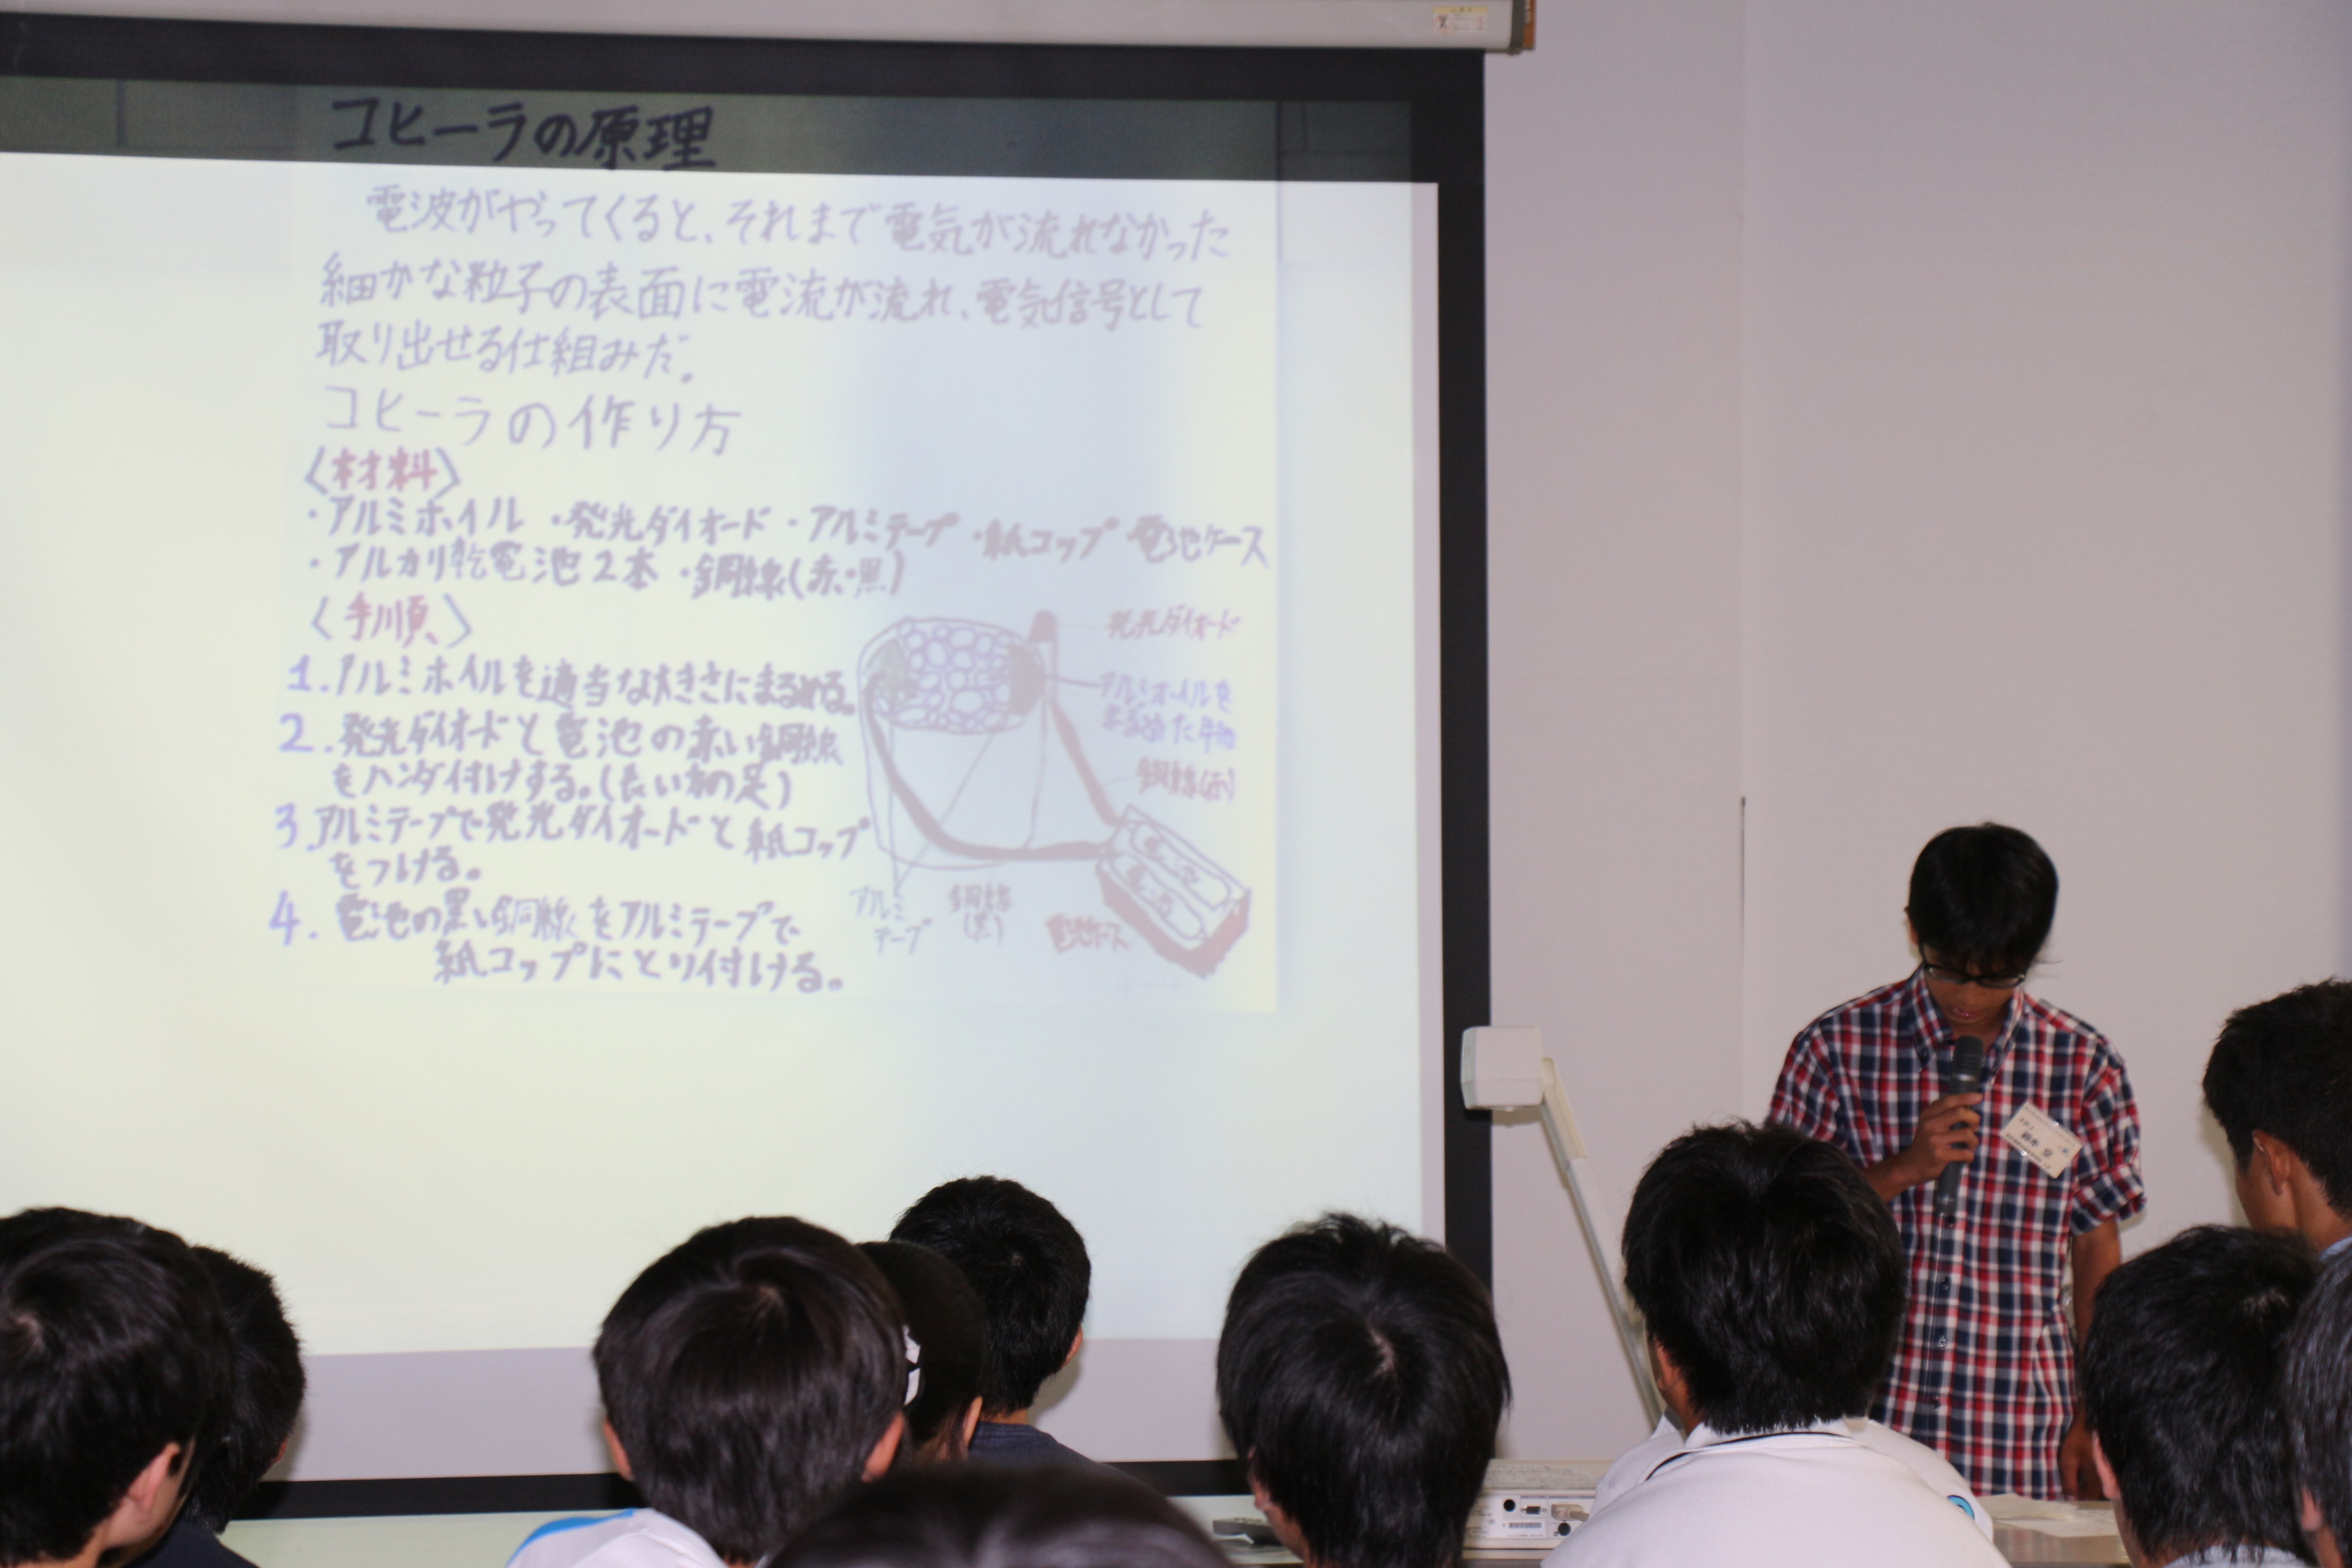 コヒーラの原理
電波がやってくると、それまで電気が流れなかった
細かな粒子の表面に電流が流れ、電気信号として
取り出せる仕組みだ。
コヒーラの作り方
〈材料〉
・アルミホイル ・発光ダイオード ・アルミテープ ・紙コップ ・電池ケース
・アルカリ乾電池2本 ・銅線(赤・黒)
〈手順〉
1. アルミホイルを適当な大きさにまるめる。
2. 発光ダイオードと電池の赤い銅線
をハンダ付けする。(長い方の足)
3. アルミテープで発光ダイオードと紙コップ
をつける。
4. 電池の黒い銅線をアルミテープで
紙コップにとり付ける。
発光ダイオード
アルミホイルを
まるめた物
銅線(赤)
アルミ
テープ
銅線
(黒)
電池ケース
鈴木